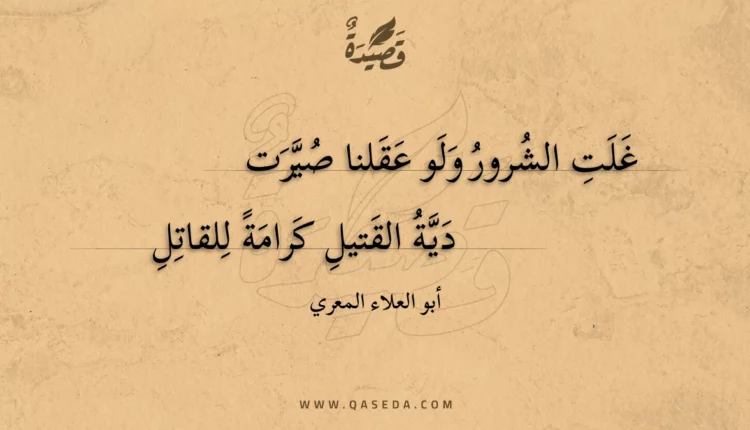 قَصِيْدَةٌ
غَلَتِ الشُرورُ وَلَو عَقَلنا صُيَّرَت
دَيَّةُ القَتيلِ كَرامَةً لِلقاتِلِ
أبو العلاء المعري
WWW.QASEDA.COM